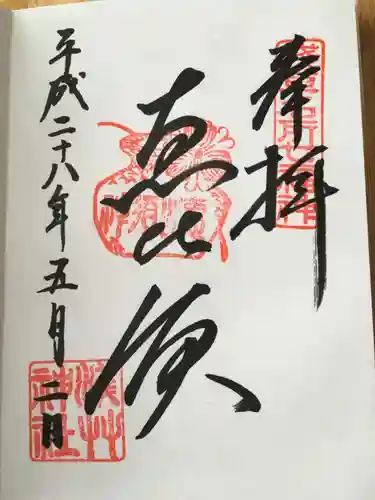 奉拝
恵比須
平成二十八年五月二日
浅草
神社